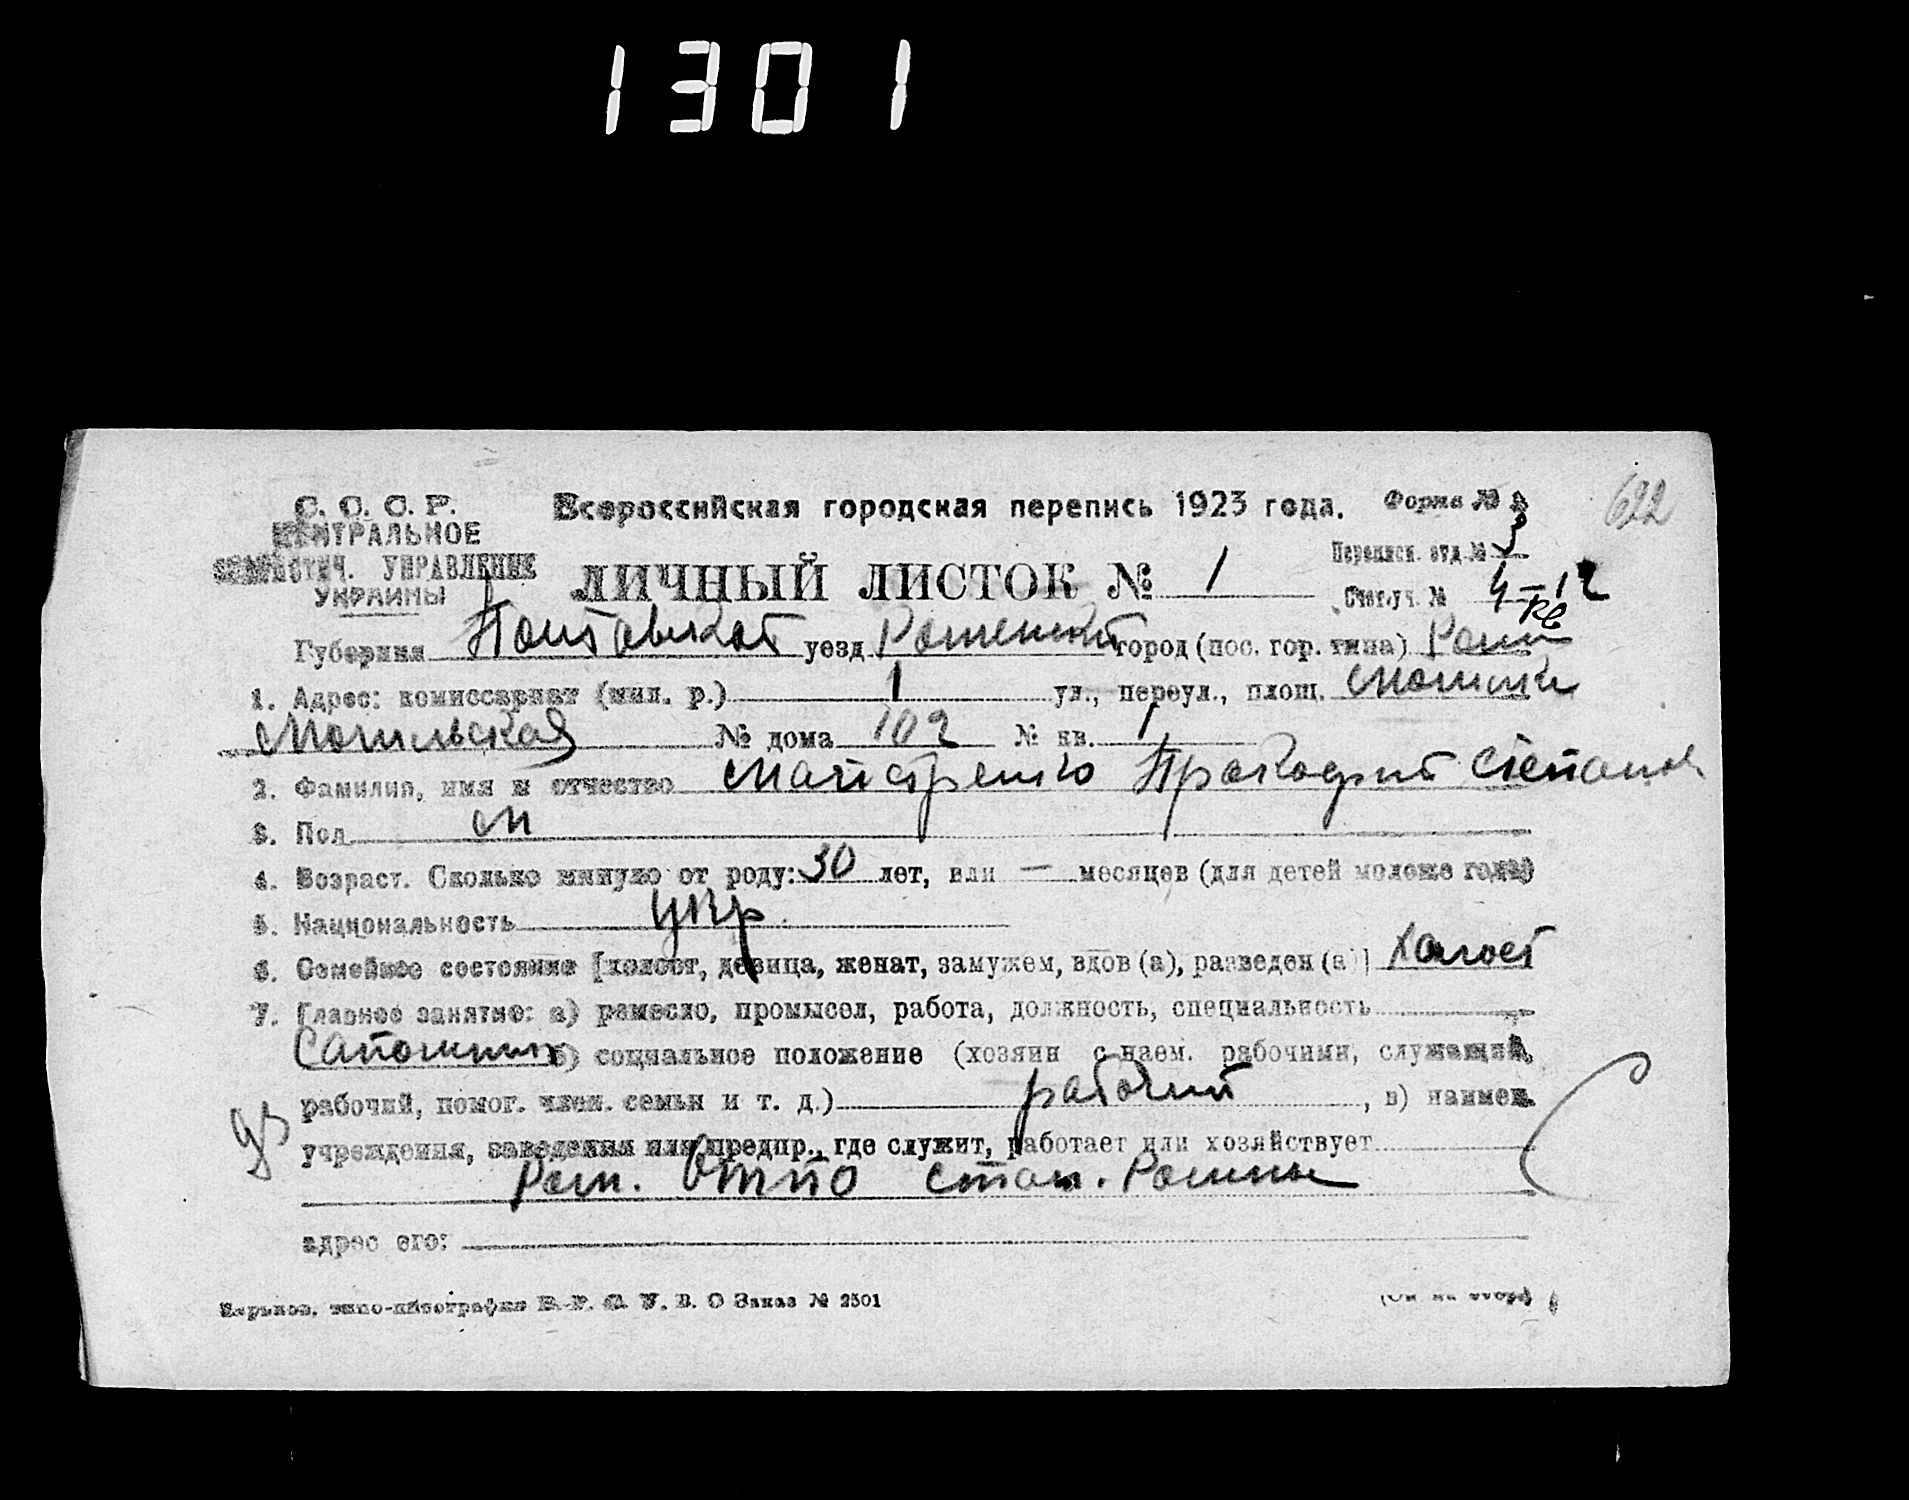 1301
622
С. С. С. Р.
ЦЕНТРАЛЬНОЕ
СТАТИСТИЧ. УПРАВЛЕНИЕ
УКРАИНЫ
Всероссийская городская перепись 1923 года.
Форма №
ЛИЧНЫЙ ЛИСТОК № 1
Переписн. отд. № 3
Счет. уч. № 4–12
Губерния Полтавской уезд Роменский город (пос. гор. типа) Ромн
1. Адрес: комиссариат (мил. р.) 1 ул., переул., площ.
№ дома 102 № кв. 1
2. Фамилия, имя и отчество Майстренко Степанов
3. Пол М
4. Возраст. Сколько минуло от роду: 30 лет, или — месяцев (для детей моложе года)
5. Национальность укр.
6. Семейное состояние [холост, девица, женат, замужем, вдов (а), разведен (а)] халост
7. Главное занятие: а) ремесло, промысел, работа, должность, специальность
Сапожник б) социальное положение (хозяин с наем. рабочими, служащий,
рабочий, помог. член. семьи и т. д.) рабочий, в) наимен.
учреждения, заведения или предпр., где служит, работает или хозяйствует
Ром. стан. Ромны
адрес его:
Харьков. типо-литография В. О Заказ № 2501